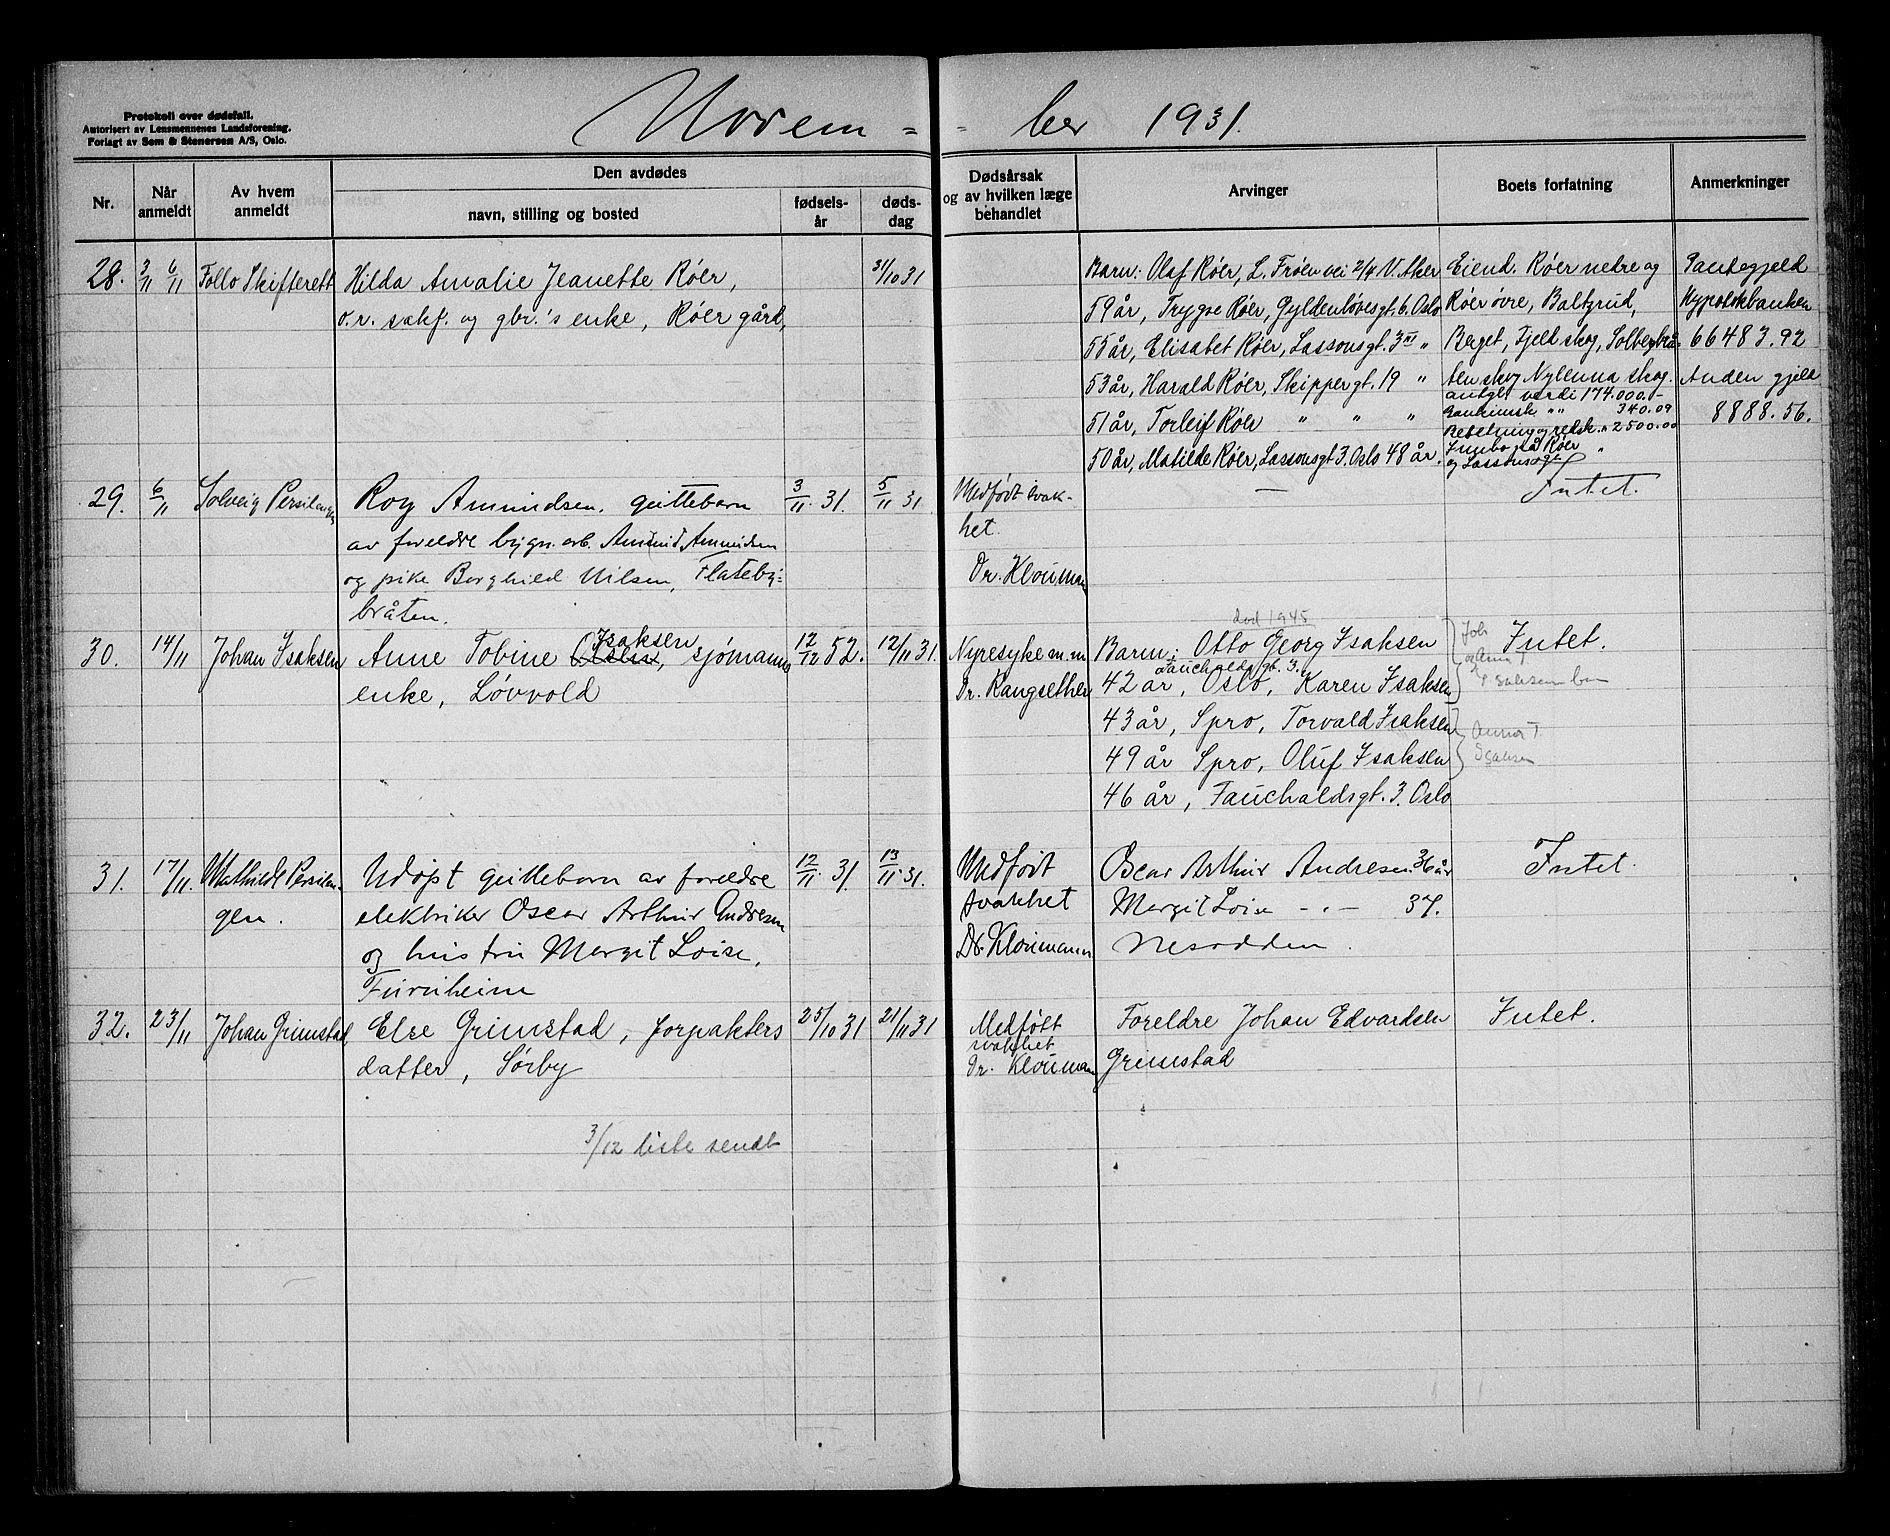 Novem-
-ber 1931.
Protokoll over dødsfall.
Autorisert av Lensmennenes Landsforening.
Forlagt av Sem & Stenersen A/S, Oslo.
Nr.
Når anmeldt
Av hvem anmeldt
Den avdødes
navn, stilling og bosted
fødsels-år
døds-dag
Dødsårsak og av hvilken læge behandlet
Arvinger
Boets forfatning
Anmerkninger
28. 3/11 6/11 Follo Skifterett
Hilda Amalie Jeanette Røer, 31/10 31
o.r. sakf. og gbr.'s enke, Røer gård,
Barn: Olaf Røer, L. Frøen vei 2/4 V. Aker
59 år, Trygve Røer, Gyldenløvesgt. 6. Oslo
55 år, Elisabet Røer, Lassonsgt. 3 "
53 år, Harald Røer, Skippergt. 19 "
51 år, Torleif Røer " " "
50 år, Matilde Røer, Lassonsgt 3. Oslo 48 år.
Eiend. Røer nedre og
Røer øvre, Baltgrud,
Berget, Fjeld skog,
skog Nylenna skog.
antgl. verdi 174.000.-
" " 340.09
og redsk. " 2500.00
Innbo på Røer "
og Lassonsgt
Pantegjeld
Hypotekbanken
66483.92
Anden gjeld
8888.56.
29. 6/11 Solveig Persilengen
Roy Amundsen, guttebarn 3/11. 31. 5/11 31.
av foreldre bygn. arb. Amund Amundsen
og pike Borghild Nilsen, Flateby-
bråten.
Medfødt svak-
het.
Dr. Klouman
—
Intet.
30. 14/11 Johan Isaksen
Isaksen
Anne Tobine Olsen, sjømanns 12/12 52. 12/11 31.
enke, Løvvold
Nyresyke m.m
Dr. Rangsethen
død 1945
Barn: Otto Georg Isaksen
Fauchaldsgt. 3.
42 år, Oslo, Karen Isaksen
43 år, Spro, Torvald Isaksen
49 år Spro, Oluf Isaksen
46 år, Fauchaldsgt. 3. Oslo
Joh
Isaksen
Anna T.
Isaksen
Intet.
31. 17/11. Mathilde Persilen-
gen.
Udøpt guttebarn av foreldre 12/11. 31. 13/11. 31.
elektriker Oscar Arthur Andresen
og hustru Margit Loise,
Furuheim
Medfødt
svakhet
Dr. Kloumann
Oscar Arthur Andresen 36 år
Margit Loise — " — 37.
Nesodden.
Intet.
32. 23/11 Johan Grimstad
Else Grimstad, forpakters 25/10 31 21/11 31
datter, Sørby
Medfødt
svakhet
Dr. Klouman
Foreldre Johan Edvardsen
Grimstad
Intet.
3/12 liste sendt